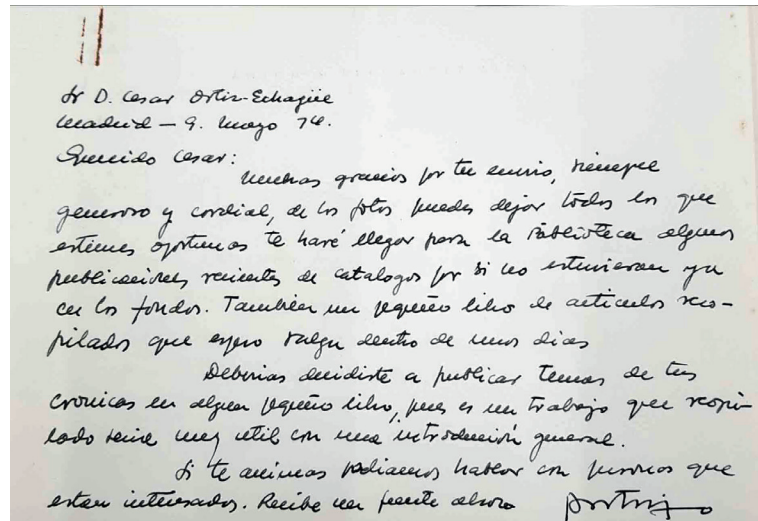 Sr D. Cesar Ortiz-Echagüe
Madrid — 9. Mayo 74.
Querido Cesar:
Muchas gracias por tu envio, siempre
generoso y cordial, de las fotos puedes dejar todas las que
estimes oportunas te haré llegar para la Biblioteca algunas
publicaciones recientes de catalogos por si no estuvieran ya
en los fondos. También un pequeño libro de articulos reco-
pilados que espero salga dentro de unos dias
Deberias decidirte a publicar temas de tus
cronicas en algun pequeño libro, pues es un trabajo que recopi-
lado seria muy util con una introducción general.
Si te animas podiamos hablar con personas que
estan interesados. Recibe un fuerte abrazo